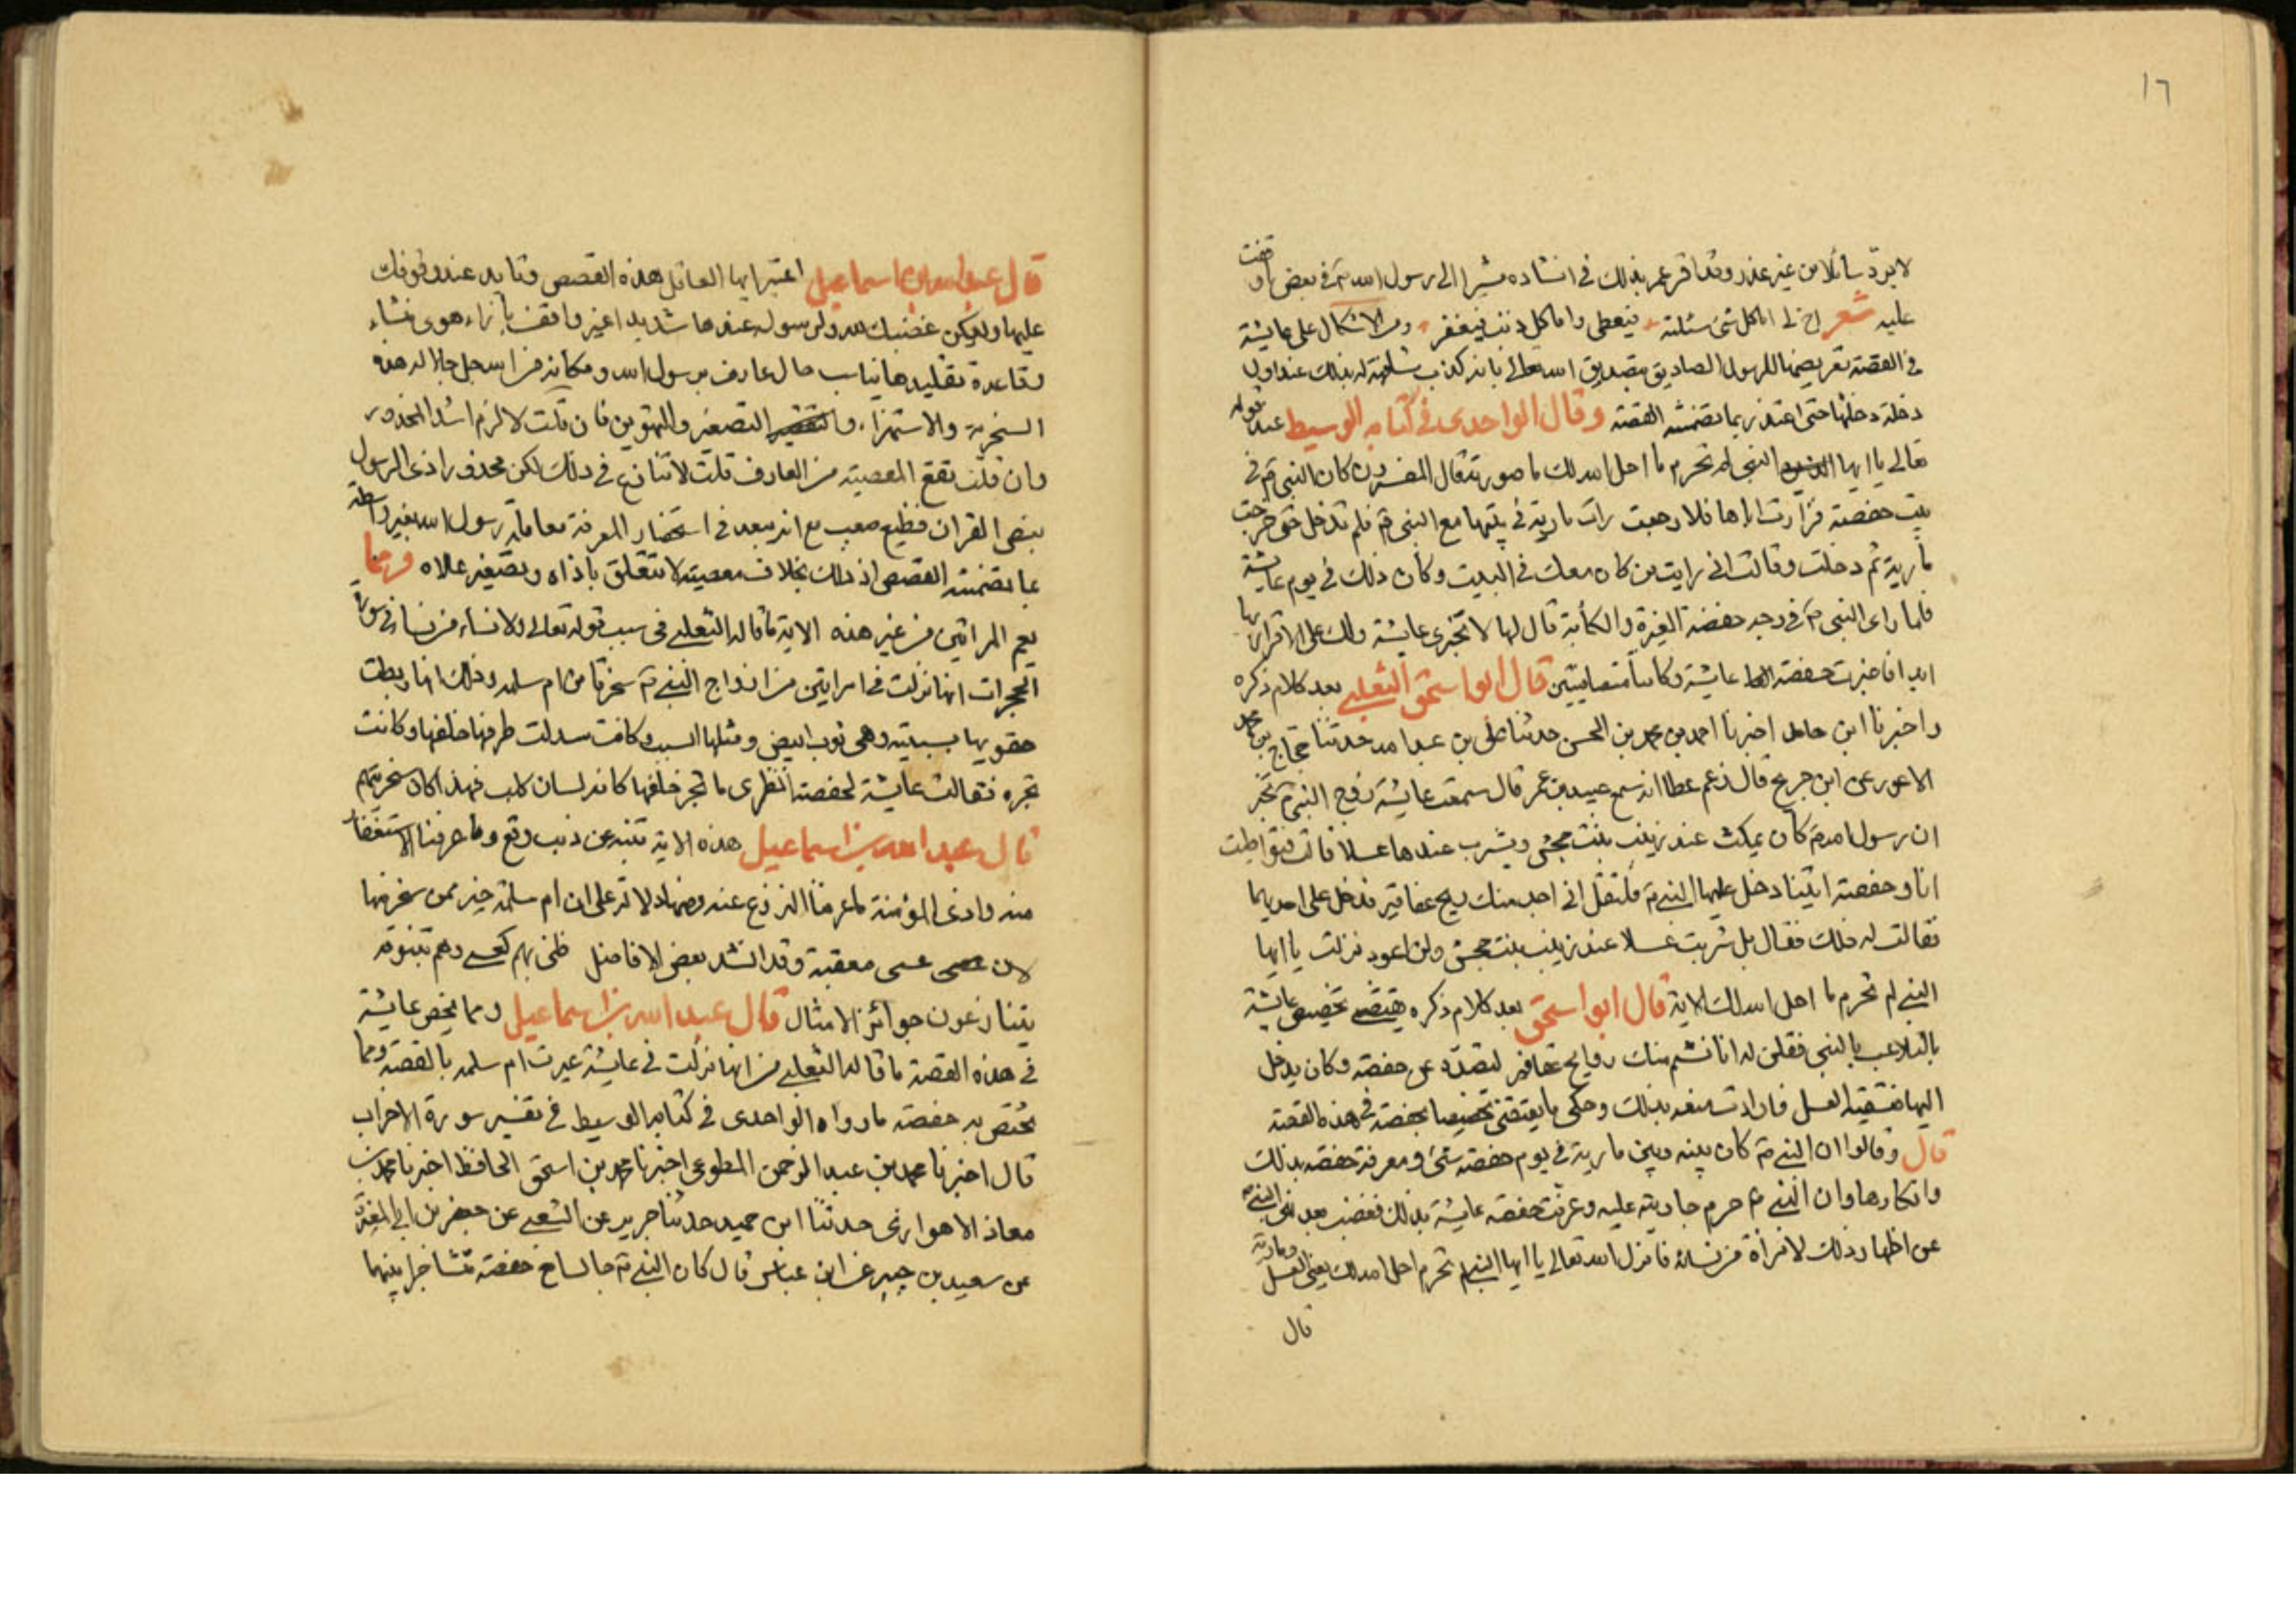 ١٦
لا يرد سائلا من غير عذر وقد اقر عمر بذلك في انشاده مشيرا الى رسول الله ص في بعض ما وقفت
عليه شعر اما كل شئ سئلته فيعطى واما كل ذنب فيغفر ومن الاشكال على عايشة
في القصة تعريضها للرسول الصادق بتصديق الله تعالى بانه كذب له بذلك عند اول
دخلة دخلتها حتى اعتذر بما تضمنته القصة وقال الواحدى في كتابه الوسيط عند قوله
تعالى يا ايها النبي لم تحرم ما احل الله لك ما صورته قال المفسرون كان النبي ص في
بيت حفصة فزارت اباها فلما رجعت رات مارية في بيتها مع النبي ص فلم تدخل حتى خرجت
مارية ثم دخلت وقالت انى رايت من كان معك في البيت وكان ذلك في يوم عايشة
فلما راى النبي ص في وجه حفصة الغيرة والكأبة قال لها لا تخبرى عايشة ولك على الا اقربها
ابدا فاخبرت حفصة عايشة وكانتا متصافيتين قال ابو اسحق الثعلبي بعد كلام ذكره
واخبرنا ابن حامل اخبرنا احمد بن محمد بن الحسن حدثنا على بن عبد الله حدثنا حجاج بن محمد
الاعور عن ابن جريح قال زعم عطا انه سمع عبيد بن عمر قال سمعت عايشة زوج النبي ص تخبر
ان رسول الله ص كان يمكث عند زينب بنت جحش ويشرب عندها عسلا قالت فتواطيت
انا وحفصة ايتنا دخل عليها النبي ص فلتقل انى اجد منك ريح مغافير فدخل على احديهما
فقالت له ذلك فقال بل شربت عسلا عند زينب بنت جحش ولن اعود فنزلت يا ايها
النبي لم تحرم ما احل الله لك الاية قال ابو اسحق بعد كلام ذكره يقتضي تخصيص عايشة
بالتلاعب بالنبي فقلن له انا نشم منك روايح مغافير لتصده عن حفصة وكان يدخل
اليها فتسقيه العسل فارادت منعه بذلك وحكى ما يقتضى تخصيصا بحفصة في هذه القصة
قال وقالوا ان النبي ص كان بينه وبين مارية في يوم حفصة شئ ومعرفة حفصة بذلك
وانكارها وان النبي ص حرم جاريته عليه وعرفت حفصة عايشة بذلك فغضب بعد نهى النبي ص
عن اظهار ذلك لامرأة من نسائه فانزل الله تعالى يا ايها النبي لم تحرم ما احل الله لك يعنى العسل ومارية
قال
قال عبد الله بن اسماعيل اعتبر ايها العاقل هذه القصص وتابد عند وقوفك
عليها وليكن غضبك لله ولرسوله عندها شديدا غير واقف بأزاء هوى منشاء
وقاعدة تقليد هاناسب حال عارف برسول الله ومكانه من الله جل جلاله هذه
السخرية والاستهزاء والتصغير والتهوين فان قلت لا لزم اشد المحذور
وان قلت تقع المعصية من العارف قلت لا تنازع في ذلك لكن محذور اذى الرسول
بنص القران فظيع صعب مع انه يبعد في استحضار المعرفة معاملة رسول الله بغير واسطة
بما تضمنته القصص اذ ذلك بخلاف معصية لا تتعلق باذاه وتصغير علاه ومما
يعم المراتين من غير هذه الاية ما قاله الثعلبي في سبب قوله تعالى ولا نساء من نساء في سورة
الحجرات انها نزلت في امراتين من ازواج النبي ص سخرتا من ام سلمه وذلك انها ربطت
حقويها بسبيبة وهي ثوب ابيض ومثلها السب وكانت سدلت طرفها خلفها وكانت
تجره فقالت عايشة لحفصة انظرى ما تجر خلفها كانه لسان كلب فهذا كان سخريتهم
قال عبد الله بن اسماعيل هذه الاية تنبه عن ذنب وقع وما عرفنا الاستغفار
منه واذى المؤمنة ما عرفنا النزوع عنه وفيها دلالة على ان ام سلمة خير ممن سخر منها
لان عسى معقبة وقد انشد بعض الافاضل ظنى بهم كعسى وهم بتنوفة
يتنازعون جوائز الامثال قال عبد الله بن اسماعيل ومما يخص عايشة
في هذه القصة ما قاله الثعلبي من انها نزلت في عايشة عيرت ام سلمه بالقصر ومما
يختص به حفصة ما رواه الواحدى في كتابه الوسيط في تفسير سورة الاحزاب
قال اخبرنا محمد بن عبد الرحمن المطوعى اخبرنا محمد بن اسحق الحافظ اخبرنا محمد بن
معاذ الاهوازى حدثنا ابن حميد حدثنا جرير عن الشعبى عن جعفر بن ابى المغيرة
عن سعيد بن جبير عن ابن عباس قال كان النبي ص جالسا مع حفصة فتشاجرا بينهما